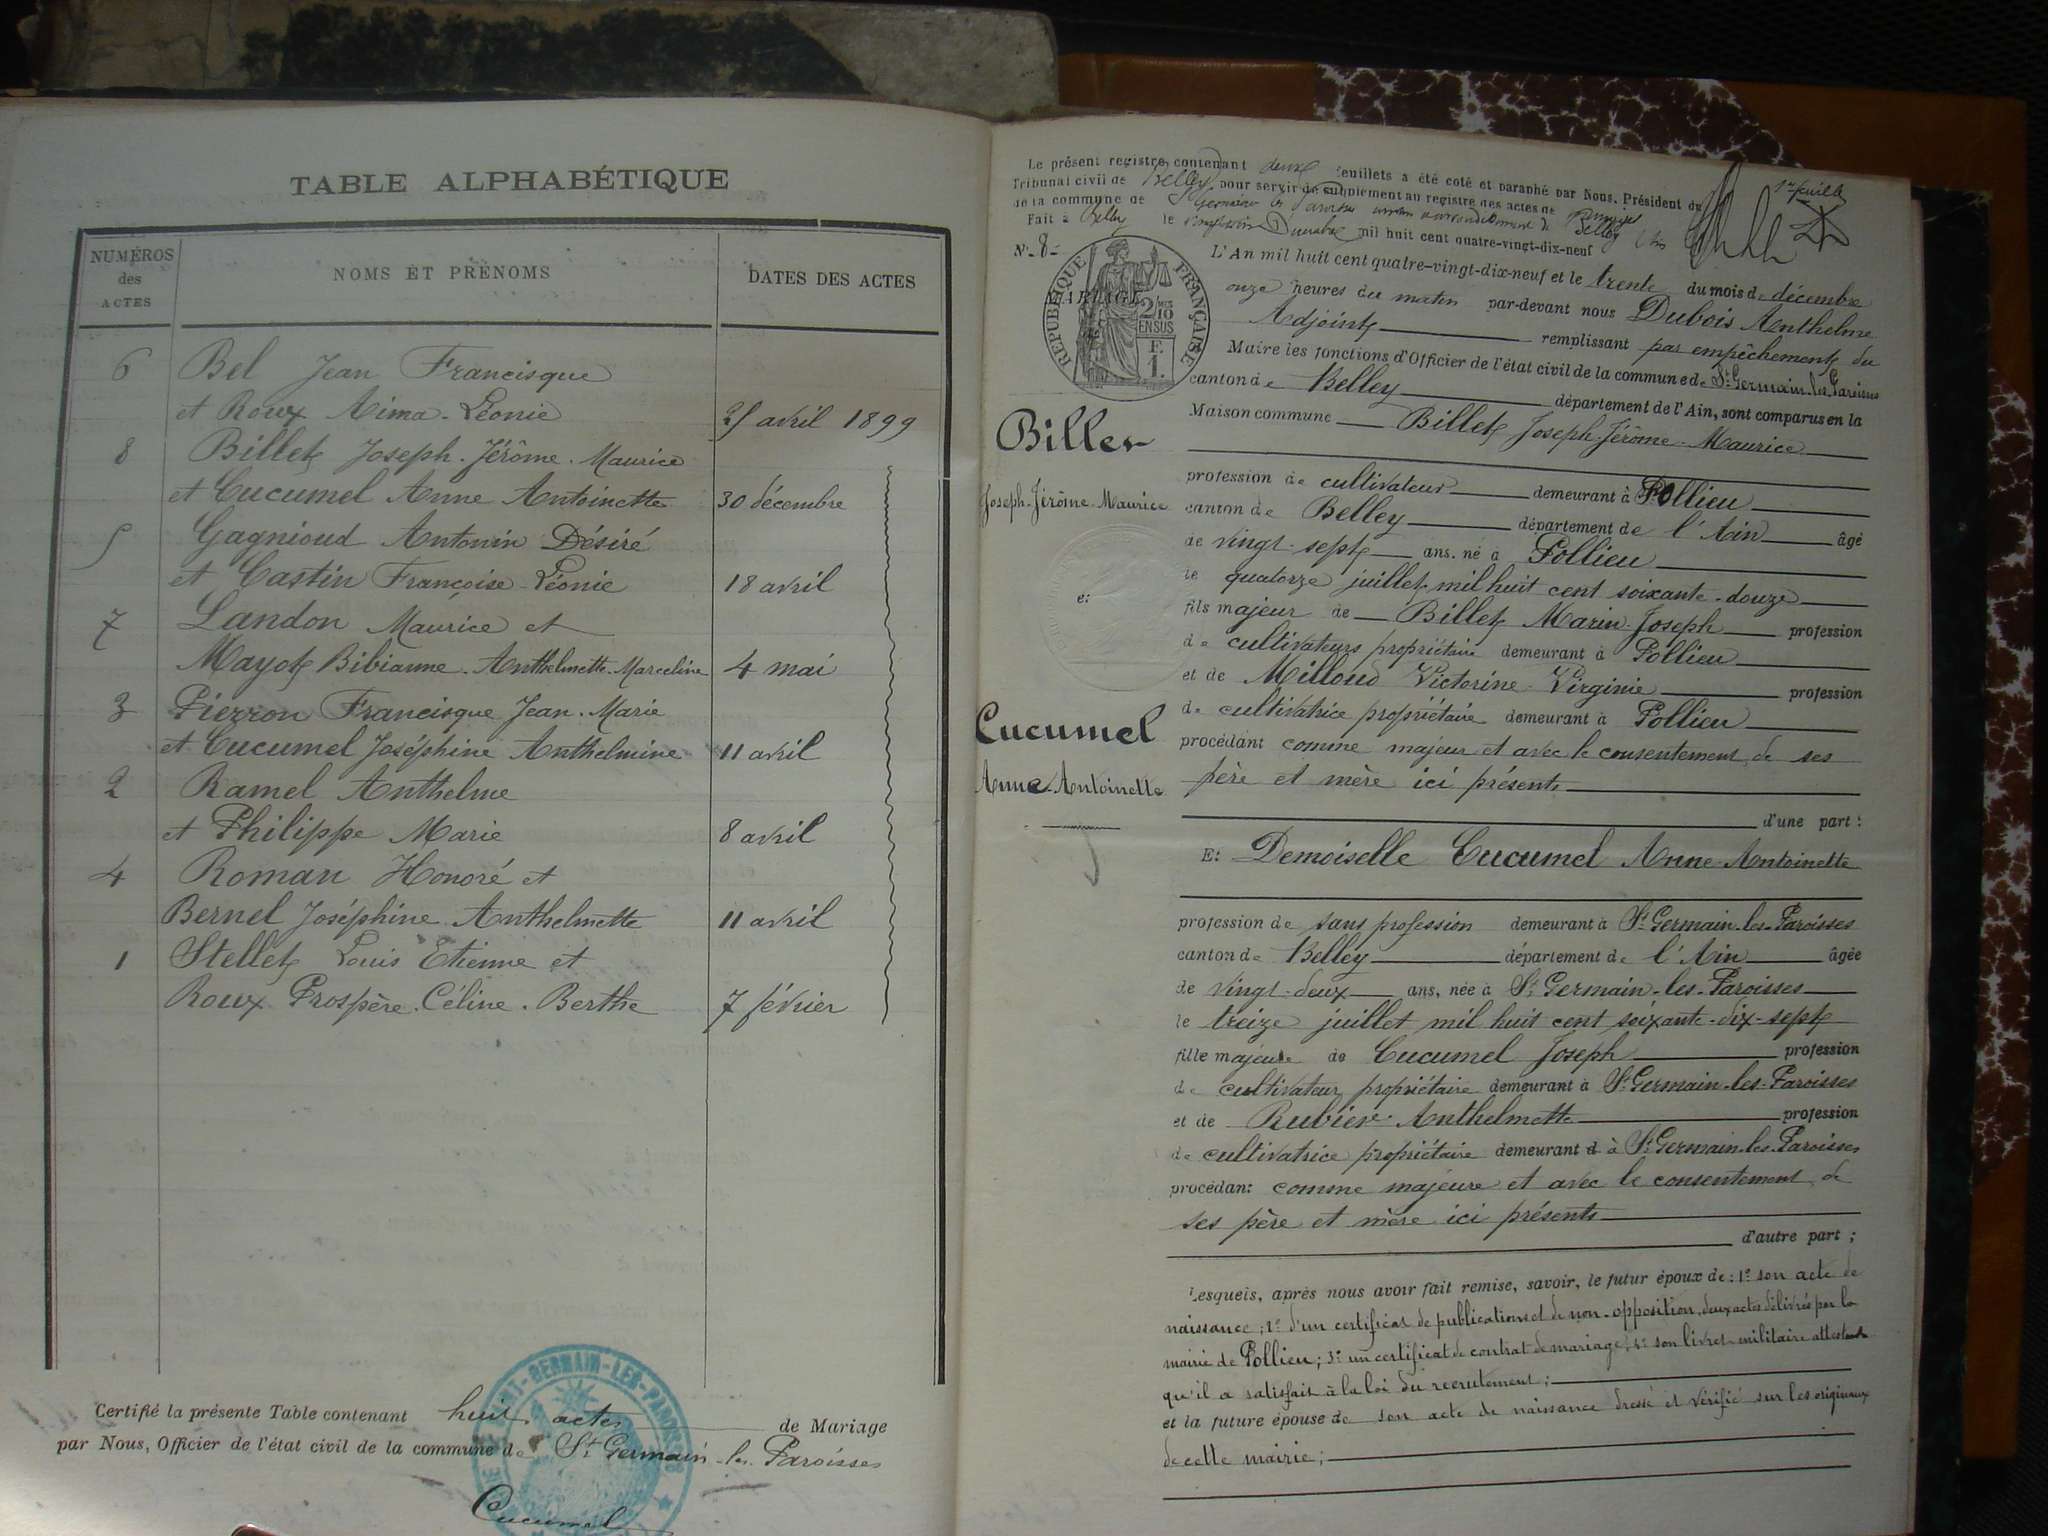 TABLE ALPHABÉTIQUE
NUMÉROS des ACTES
NOMS ET PRÉNOMS
DATES DES ACTES
6 Bel Jean Francisque
et Roux Aima-Léonie 25 avril 1899
8 Billet Joseph-Jérôme-Maurice
et Cucumel Anne Antoinette 30 décembre
5 Gagnioud Antonin Désiré
et Castin Françoise-Léonie 18 avril
7 Landon Maurice et
Mayot Bibianne-Anthelmette-Marceline 4 mai
3 Pierron Francisque Jean-Marie
et Cucumel Joséphine Anthelmine 11 avril
2 Ramel Anthelme
et Philippe Marie 8 avril
4 Roman Honoré et
Bernel Joséphine Anthelmette 11 avril
1 Stellet Louis Etienne et
Roux Prospère-Céline-Berthe 7 février
Certifié la présente Table contenant huit actes de Mariage
par Nous, Officier de l'état civil de la commune de St Germain-les-Paroisses
Cucumel
SAINT-GERMAIN-LES-PAROISSES
Le présent registre contenant deux feuillets a été coté et paraphé par Nous, Président du
Tribunal civil de Belley, pour servir de supplément au registre des actes de mariages
de la commune de St Germain les Paroisses arrondissement de Belley
Fait à Belley le Décembre mil huit cent quatre-vingt-dix-neuf
1er feuillet
N° 8
RÉPUBLIQUE FRANÇAISE
2/10 EN SUS
F. 1.
MARIAGE
L'An mil huit cent quatre-vingt-dix-neuf et le trente du mois de décembre
onze heures du matin par-devant nous Dubois Anthelme
Adjoint remplissant par empêchement du
Maire les fonctions d'Officier de l'état civil de la commune de St Germain-les-Paroisses
canton de Belley département de l'Ain, sont comparus en la
Maison commune Billet Joseph-Jérôme-Maurice
Billet
Joseph-Jérôme-Maurice
et
Cucumel
Anne-Antoinette
profession de cultivateur demeurant à Pollieu
canton de Belley département de l'Ain âgé
de vingt-sept ans, né à Pollieu
le quatorze juillet mil huit cent soixante-douze
fils majeur de Billet Marin-Joseph profession
de cultivateurs propriétaire demeurant à Pollieu
et de Milloud Victorine-Virginie profession
de cultivatrice propriétaire demeurant à Pollieu
procédant comme majeur et avec le consentement de ses
père et mère ici présents
d'une part :
Et Demoiselle Cucumel Anne-Antoinette
profession de sans profession demeurant à St Germain-les-Paroisses
canton de Belley département de l'Ain âgée
de vingt-deux ans, née à St Germain-les-Paroisses
le treize juillet mil huit cent soixante-dix-sept
fille majeure de Cucumel Joseph profession
de cultivateur propriétaire demeurant à St Germain-les-Paroisses
et de Rubier Anthelmette profession
de cultivatrice propriétaire demeurant à St Germain-les-Paroisses
procédant comme majeure et avec le consentement de
ses père et mère ici présents
d'autre part ;
Lesquels, après nous avoir fait remise, savoir, le futur époux de : 1° son acte de
naissance ; 2° d'un certificat de publications et de non-opposition, deux actes délivrés par la
mairie de Pollieu ; 3° un certificat de contrat de mariage ; 4° son livret militaire attestant
qu'il a satisfait à la loi du recrutement ;
et la future épouse de son acte de naissance dressé et vérifié sur les originaux
de cette mairie ;